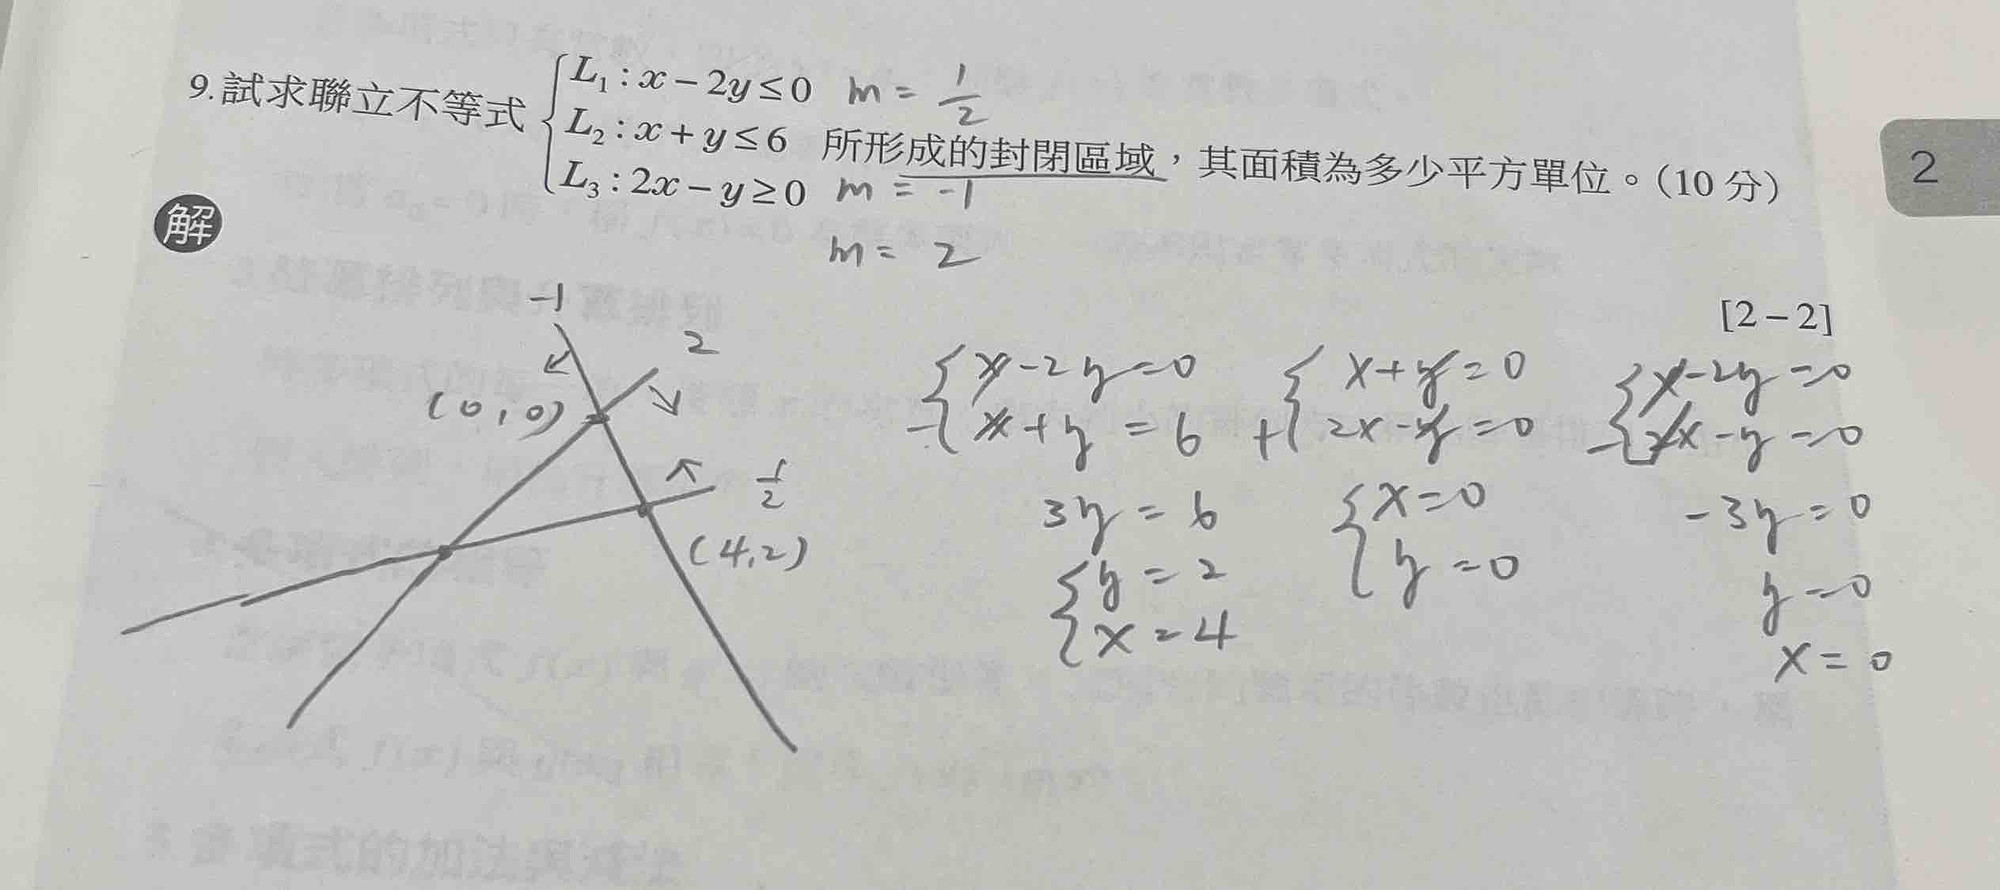 9.試求聯立不等式 { L₁ : x − 2y ≤ 0 m = 1/2
L₂ : x + y ≤ 6 所形成的封閉區域，其面積為多少平方單位。(10 分)
L₃ : 2x − y ≥ 0 m = -1
m = 2
2
解
[2－2]
-1
2
(0,0)
1/2
(4,2)
{ x-2y=0
-{ x+y=6
3y=6
{ y=2
{ x=4
+{ x+y=0
2x-y=0
{ x=0
{ y=0
{ x-2y=0
-{ 2x-y=0
-3y=0
y=0
x=0